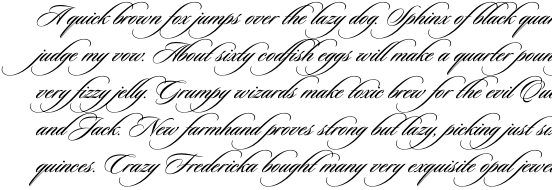 A quick brown fox jumps over the lazy dog. Sphinx of black quar
judge my vow. About sixty codfish eggs will make a quarter poun
very fizzy jelly. Grumpy wizards make toxic brew for the evil Que
and Jack. New farmhand proves strong but lazy, picking just six
quinces. Crazy Fredericka bought many very exquisite opal jewe